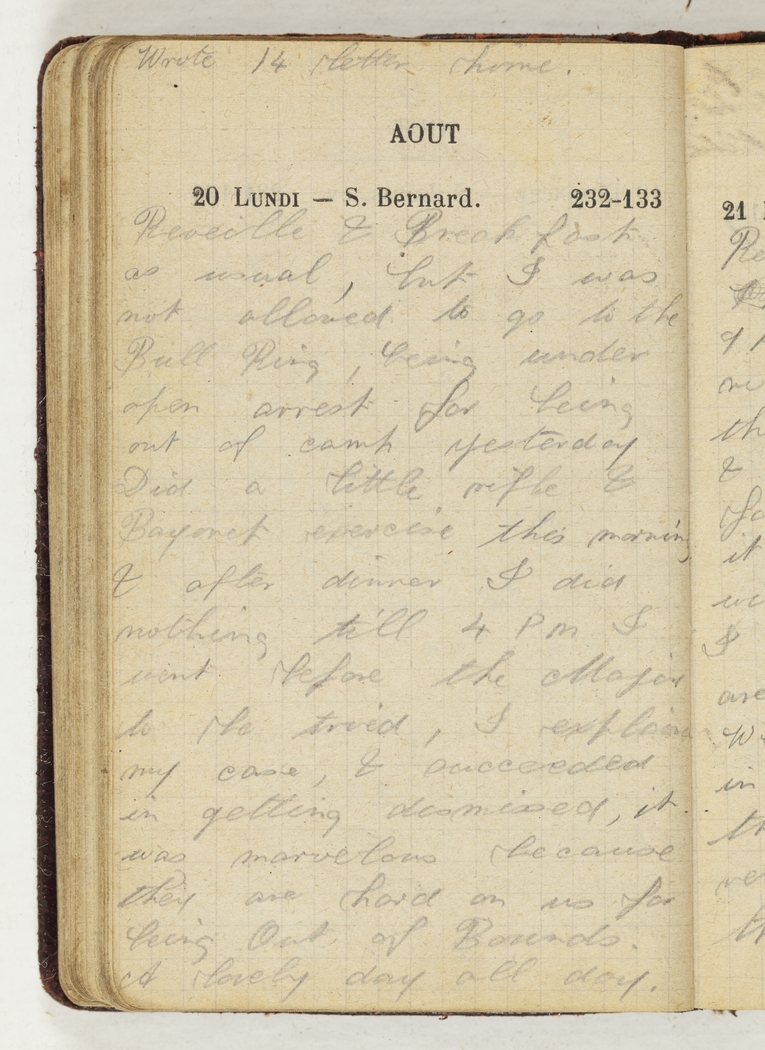 Wrote 14 letter home.
AOUT
20 LUNDI — S. Bernard. 232-133
Reveille & Breakfast
as usual, but I was
not allowed to go to the
Bull Ring, being under
open arrest for being
out of camp yesterday
Did a little rifle &
Bayonet exercise this morning
& after dinner I did
nothing till 4 P m I
went before the Major
to be tried, I explain
my case, & succeeded
in getting dismissed, it
was marvelous because
they are hard on us for
being Out of Bounds.
A lovely day all day.
21
Re
it
I
are
W
in